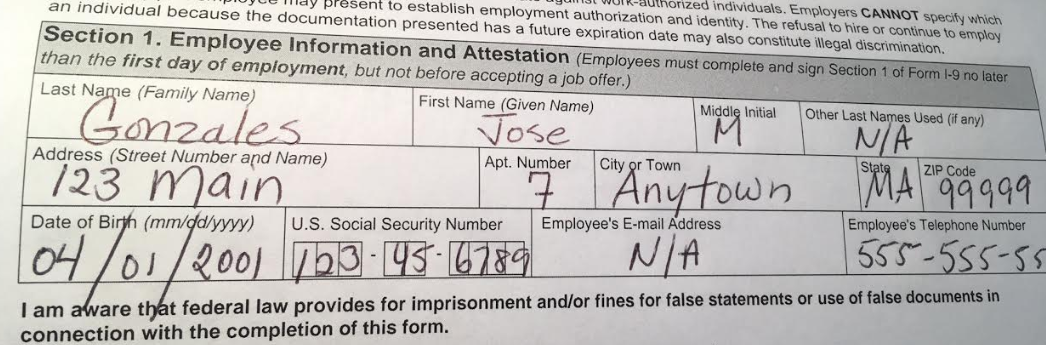 may present to establish employment authorization and identity. The refusal to hire or continue to employ
work-authorized individuals. Employers CANNOT specify which
an individual because the documentation presented has a future expiration date may also constitute illegal discrimination.
Section 1. Employee Information and Attestation (Employees must complete and sign Section 1 of Form I-9 no later
than the first day of employment, but not before accepting a job offer.)
Last Name (Family Name) First Name (Given Name) Middle Initial Other Last Names Used (if any)
Gonzales Jose M N/A
Address (Street Number and Name) Apt. Number City or Town State ZIP Code
123 Main 7 Anytown MA 99999
Date of Birth (mm/dd/yyyy) U.S. Social Security Number Employee's E-mail Address Employee's Telephone Number
04/01/2001 123-45-6789 N/A 555-555-55
I am aware that federal law provides for imprisonment and/or fines for false statements or use of false documents in
connection with the completion of this form.